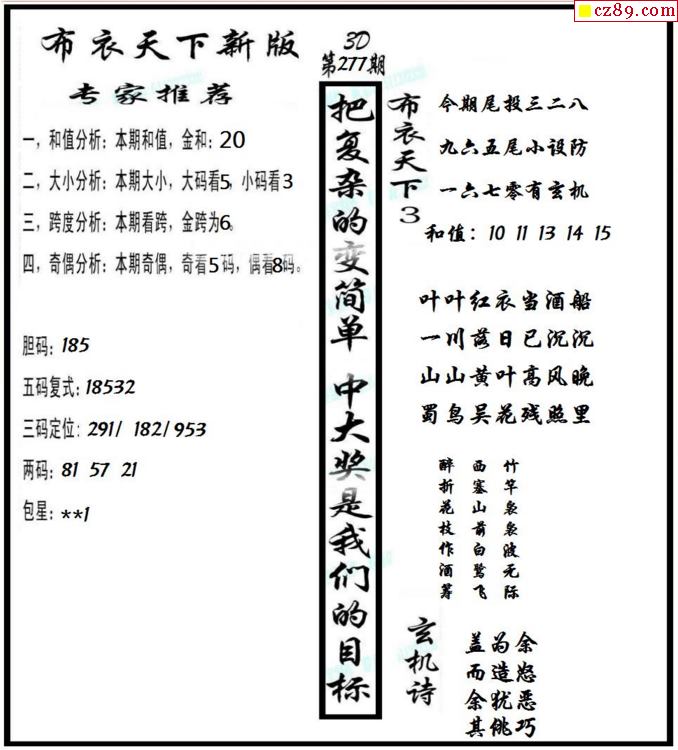 cz89.com
布衣天下新版
专家推荐
一，和值分析：本期和值，金和：20
二，大小分析：本期大小，大码看5，小码看3
三，跨度分析：本期看跨，金跨为6。
四，奇偶分析：本期奇偶，奇看5码，偶看8码。
胆码：185
五码复式：18532
三码定位：291/ 182/953
两码：81 57 21
包星：**1
3D
第277期
把复杂的变简单 中大奖是我们的目标
布衣天下3
今期尾投三二八
九六五尾小设防
一六七零有玄机
和值：10 11 13 14 15
叶叶红衣当酒船
一川落日已沉沉
山山黄叶高风晚
蜀鸟吴花残照里
醉折花枝作酒筹
西塞山前白鹭飞
竹竿袅袅波无际
玄机诗
盖为余
而造怒
余犹恶
其佻巧